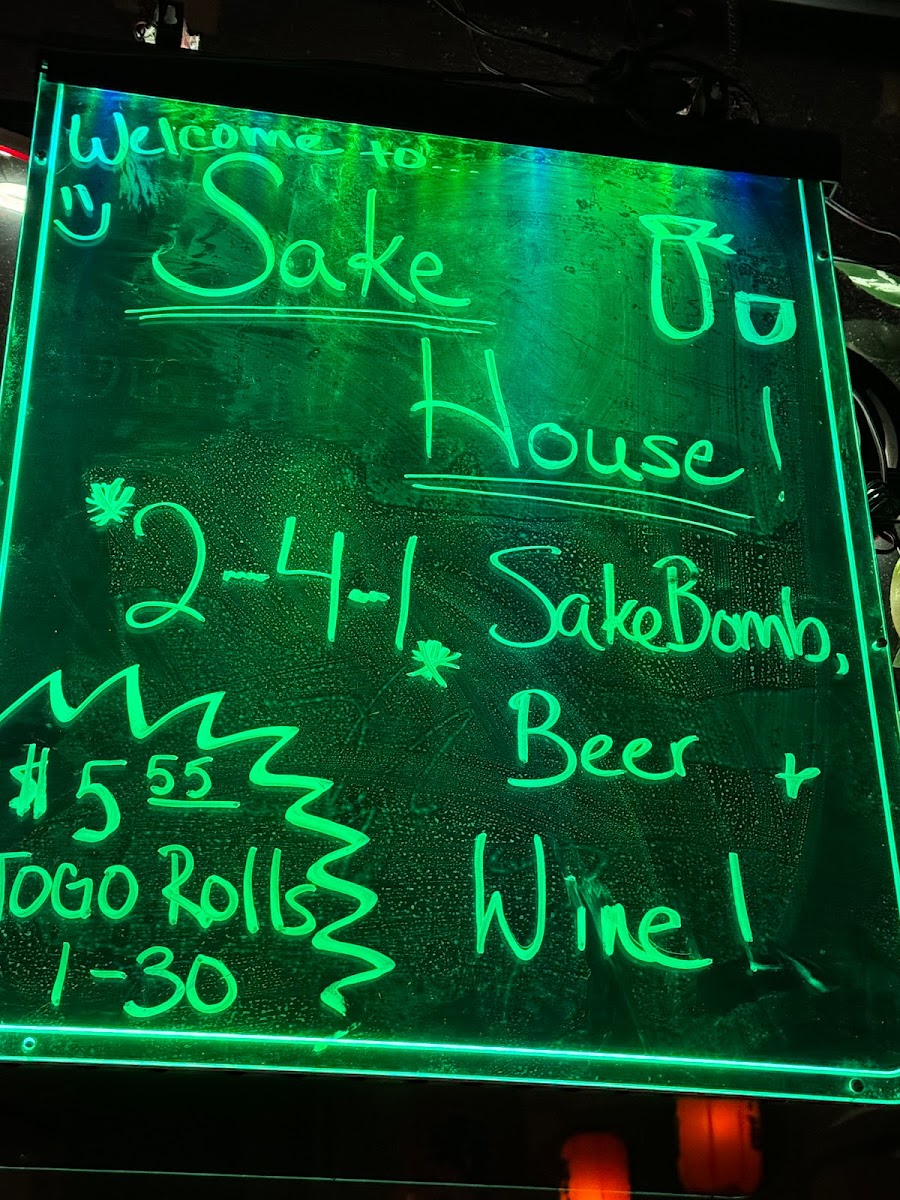 Welcome to
Sake
House!
*2-4-1* SakeBomb,
Beer +
Wine!
$5 55
TOGO Rolls
1-30